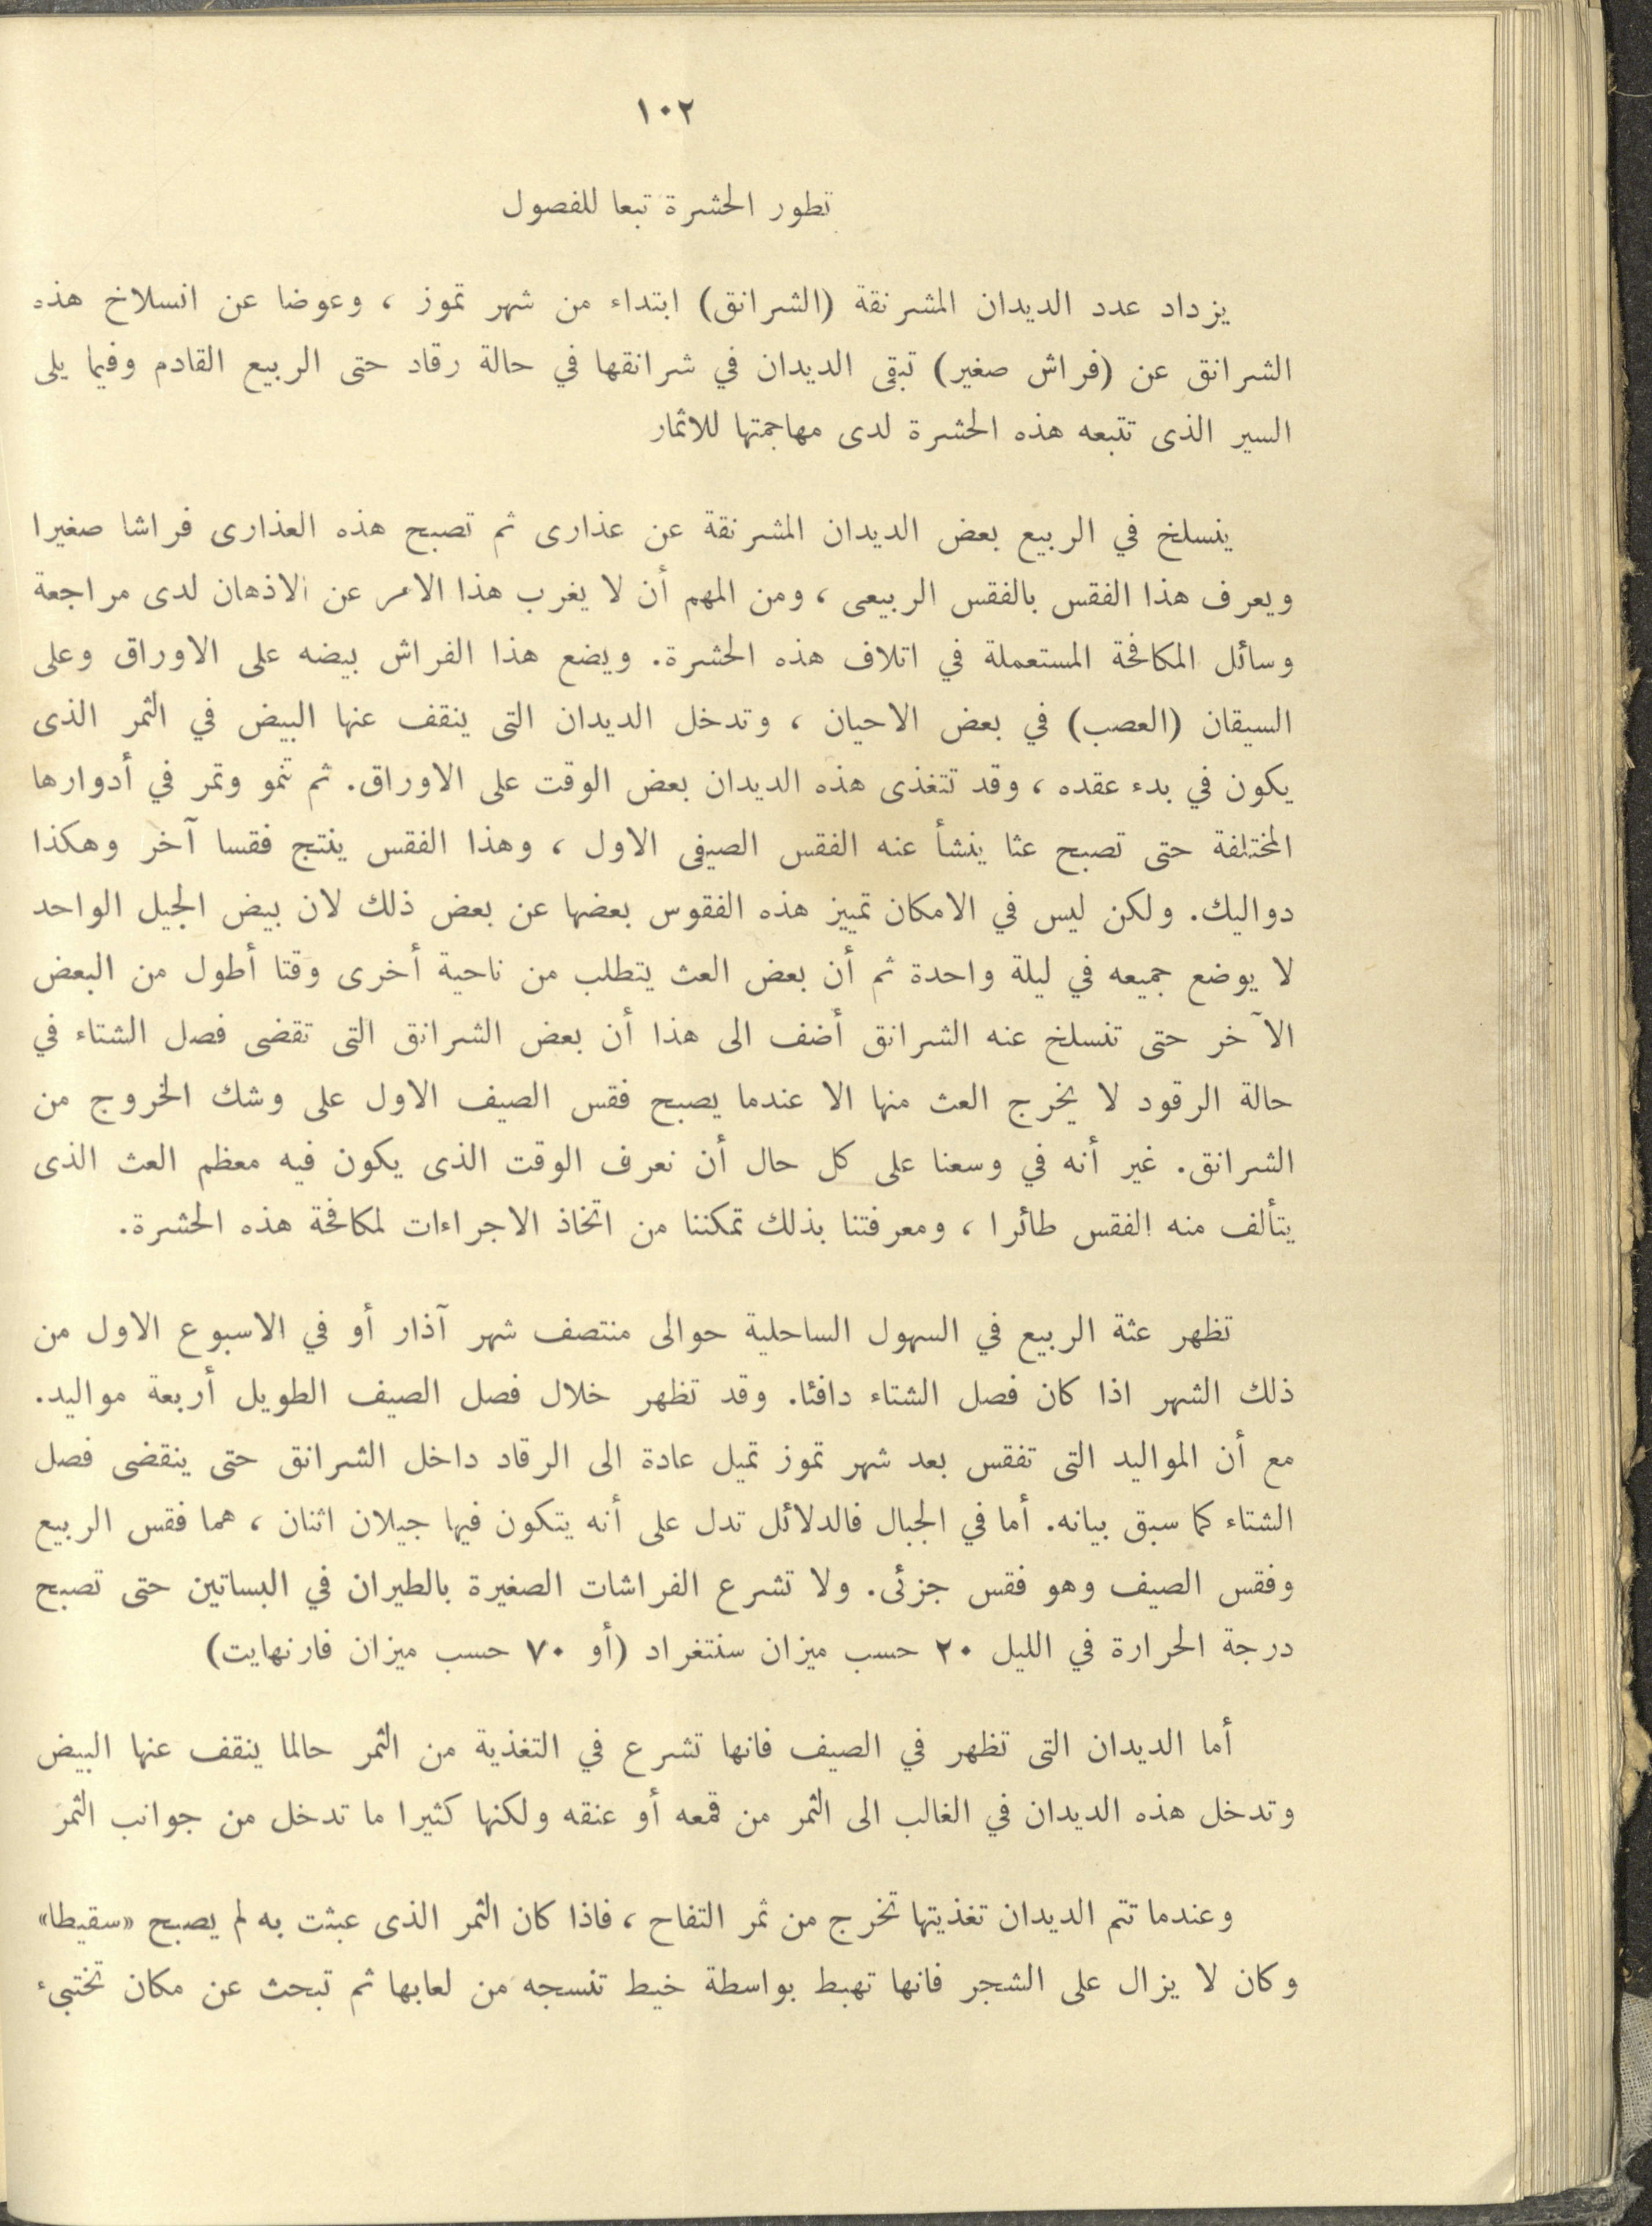 ١٠٢
تطور الحشرة تبعا للفصول
يزداد عدد الديدان المشرنقة (الشرانق) ابتداء من شهر تموز ، وعوضا عن انسلاخ هذه
الشرانق عن (فراش صغير) تبقى الديدان في شرانقها في حالة رقاد حتى الربيع القادم وفيما يلى
السير الذى تتبعه هذه الحشرة لدى مهاجمتها للاثمار
ينسلخ في الربيع بعض الديدان المشرنقة عن عذارى ثم تصبح هذه العذارى فراشا صغيرا
ويعرف هذا الفقس بالفقس الربيعى ، ومن المهم أن لا يغرب هذا الامر عن الاذهان لدى مراجعة
وسائل المكافحة المستعملة في اتلاف هذه الحشرة. ويضع هذا الفراش بيضه على الاوراق وعلى
السيقان (العصب) في بعض الاحيان ، وتدخل الديدان التى ينقف عنها البيض في الثمر الذى
يكون في بدء عقده ، وقد تتغذى هذه الديدان بعض الوقت على الاوراق. ثم تنمو وتمر في أدوارها
المختلفة حتى تصبح عثا ينشأ عنه الفقس الصيفى الاول ، وهذا الفقس ينتج فقسا آخر وهكذا
دواليك. ولكن ليس في الامكان تمييز هذه الفقوس بعضها عن بعض ذلك لان بيض الجيل الواحد
لا يوضع جميعه في ليلة واحدة ثم أن بعض العث يتطلب من ناحية أخرى وقتا أطول من البعض
الآخر حتى تنسلخ عنه الشرانق أضف الى هذا أن بعض الشرانق التى تقضى فصل الشتاء في
حالة الرقود لا يخرج العث منها الا عندما يصبح فقس الصيف الاول على وشك الخروج من
الشرانق. غير أنه في وسعنا على كل حال أن نعرف الوقت الذى يكون فيه معظم العث الذى
يتألف منه الفقس طائرا ، ومعرفتنا بذلك تمكننا من اتخاذ الاجراءات لمكافحة هذه الحشرة.
تظهر عثة الربيع في السهول الساحلية حوالى منتصف شهر آذار أو في الاسبوع الاول من
ذلك الشهر اذا كان فصل الشتاء دافئا. وقد تظهر خلال فصل الصيف الطويل أربعة مواليد.
مع أن المواليد التى تفقس بعد شهر تموز تميل عادة الى الرقاد داخل الشرانق حتى ينقضى فصل
الشتاء كما سبق بيانه. أما في الجبال فالدلائل تدل على أنه يتكون فيها جيلان اثنان ، هما فقس الربيع
وفقس الصيف وهو فقس جزئى. ولا تشرع الفراشات الصغيرة بالطيران في البساتين حتى تصبح
درجة الحرارة في الليل ٢٠ حسب ميزان سنتغراد (أو ٧٠ حسب ميزان فارنهايت)
أما الديدان التى تظهر في الصيف فانها تشرع في التغذية من الثمر حالما ينقف عنها البيض
وتدخل هذه الديدان في الغالب الى الثمر من قمعه أو عنقه ولكنها كثيرا ما تدخل من جوانب الثمر
وعندما تتم الديدان تغذيتها تخرج من ثمر التفاح ، فاذا كان الثمر الذى عبثت به لم يصبح «سقيطا»
وكان لا يزال على الشجر فانها تهبط بواسطة خيط تنسجه من لعابها ثم تبحث عن مكان تختبىء